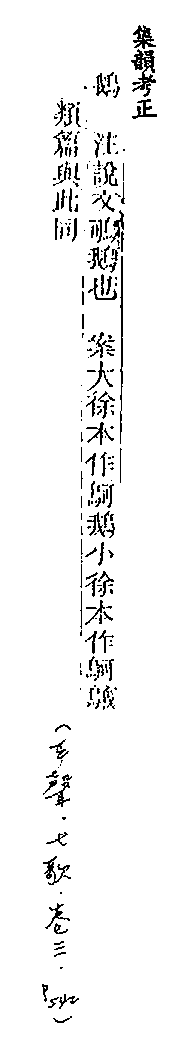 集韻考正
鵝 注說文鵝也 案大徐本作鴚鵝小徐本作鴚
類篇與此同
(平聲．七歌．卷三．P542)